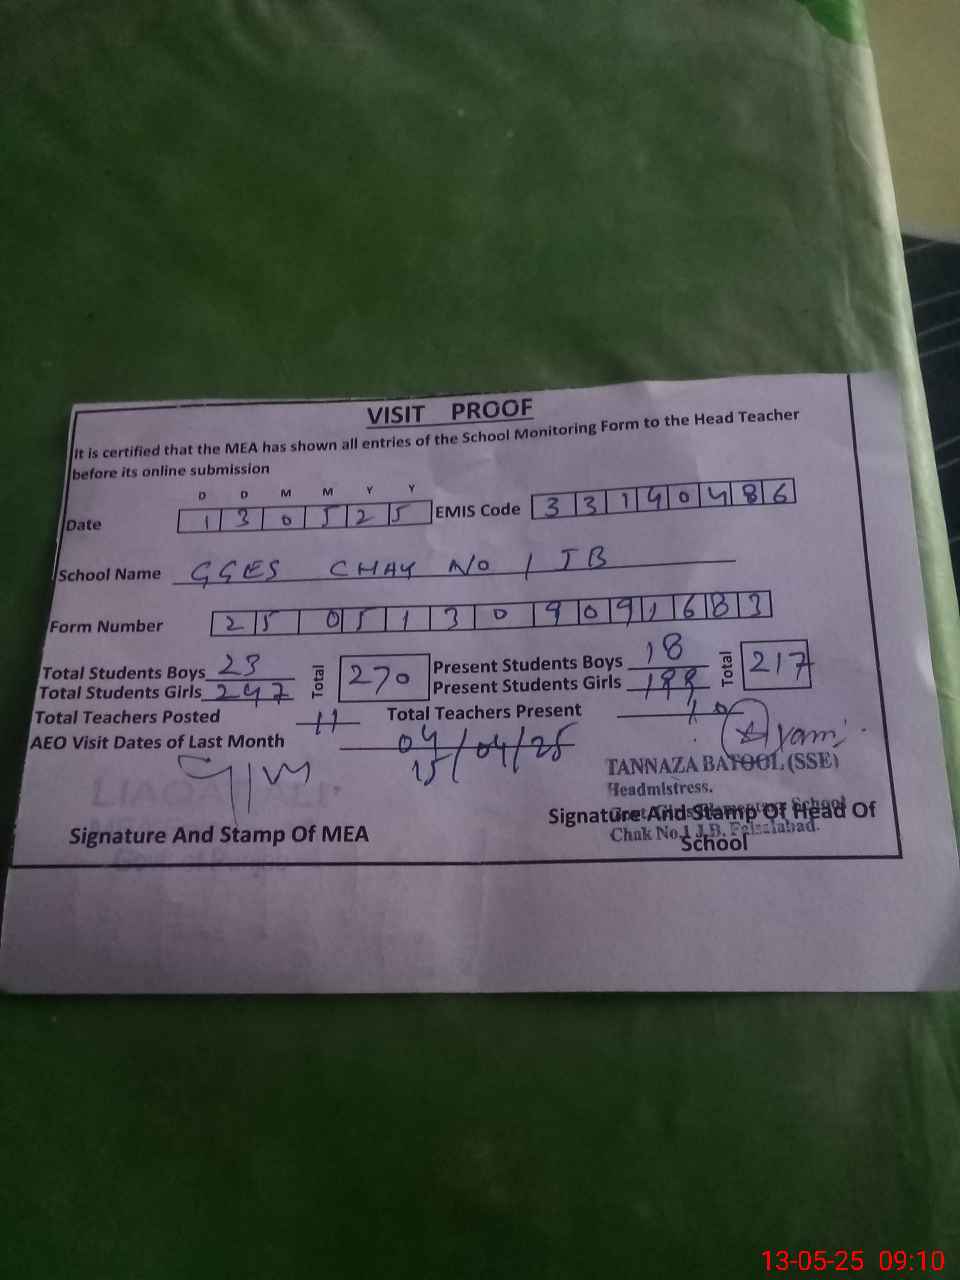 VISIT PROOF
It is certified that the MEA has shown all entries of the School Monitoring Form to the Head Teacher
before its online submission
D D M M Y Y
Date 1 3 0 5 2 5 EMIS Code 3 3 1 4 0 4 8 6
School Name GGES CHAK NO 1 JB
Form Number 2 5 0 5 1 3 0 9 0 9 1 6 8 3
Total Students Boys 23 Total 270 Present Students Boys 18 Total 217
Total Students Girls 247 Present Students Girls 199
Total Teachers Posted 11 Total Teachers Present 10
AEO Visit Dates of Last Month 04/04/25
15
TANNAZA BATOOL (SSE)
Headmistress.
Govt. Girls Elementary School
Chak No.1 J.B. Faisalabad.
LIAQAT ALI
Signature And Stamp Of MEA
Signature And Stamp Of Head Of
School
13-05-25 09:10